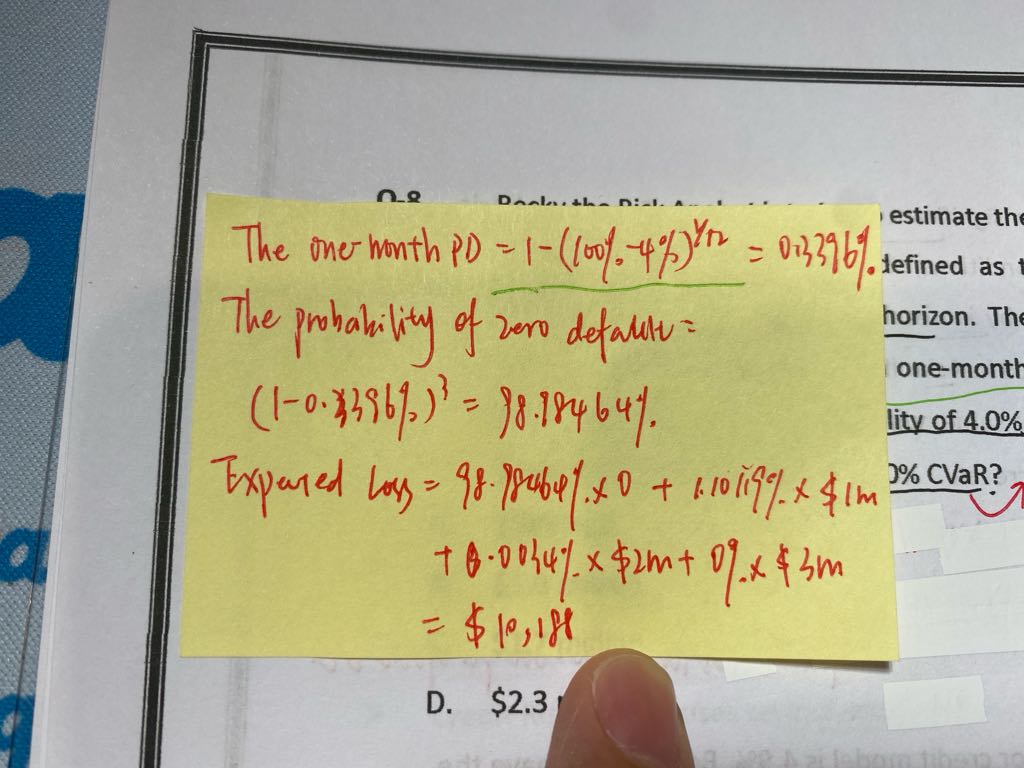 Q-8
estimate the
The one-month PD = 1-(100%-4%)^1/12 = 0.3396%.
defined as
The probability of zero default =
horizon. The
one-month
(1-0.3396%)³ = 98.98464%.
lity of 4.0%
0% CVaR?
Expected Loss = 98.98464% x 0 + 1.10119% x $1m
+ 0.0034% x $2m + 0% x $3m
= $10,188
D. $2.3